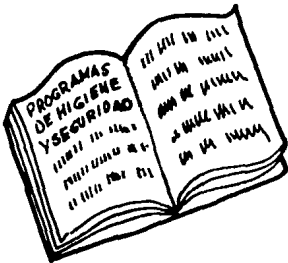 PROGRAMAS
DE HIGIENE
Y SEGURIDAD